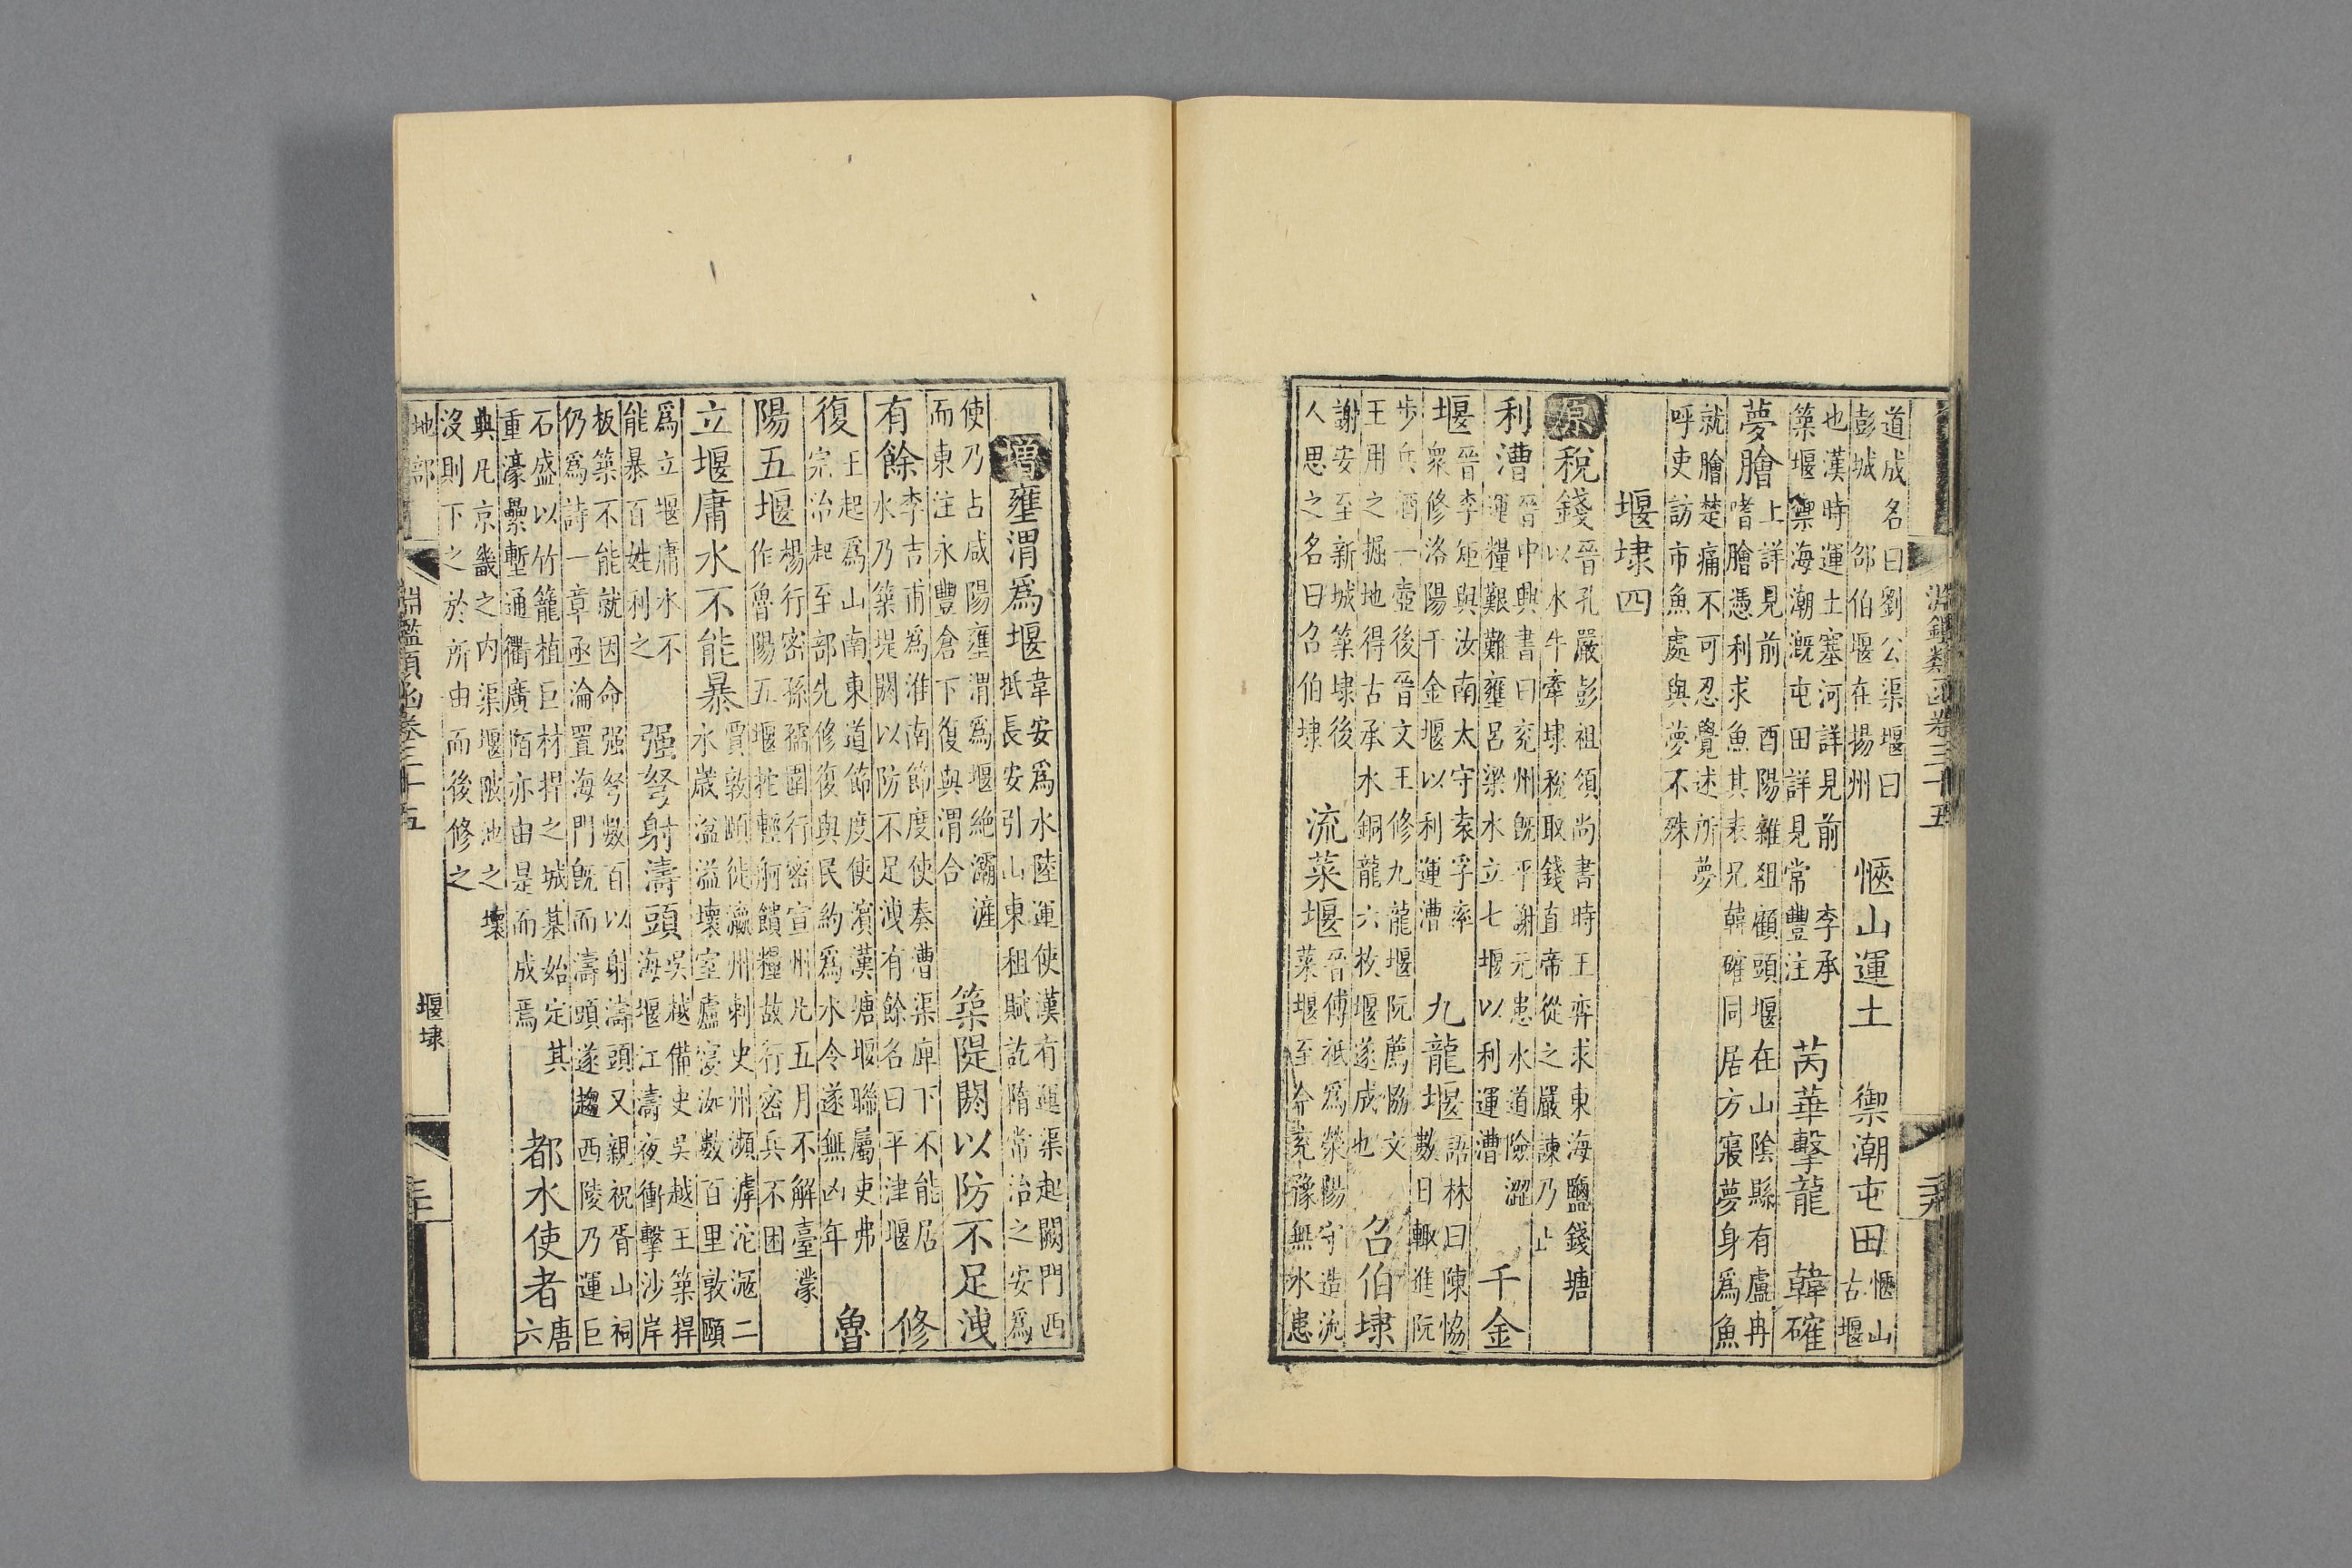 淵鑑類函卷三十五
道成名曰劉公渠堰曰
彭城 邵伯堰在揚州 愜山運土 禦潮屯田 愜山
古堰
也漢時運土塞河詳見前 李承
築堰禦海潮溉屯田詳見常豐注 芮華擊龍 韓確
夢膾 上詳見前 酉陽雜俎顧頭堰在山陰縣有盧冉
嗜膾憑利求魚其表兄韓確同居方寢夢身爲魚
就膾楚痛不可忍覺述所夢
呼吏訪市魚處與夢不殊
堰埭四
原 稅錢 晉孔嚴彭祖領尚書時王弈求東海鹽錢塘
以水牛牽埭稅取錢直帝從之嚴諫乃止
利漕 晉中興書曰兖州旣平謝元患水道險澀
運糧艱難壅呂梁水立七堰以利運漕 千金
堰 晉李矩與汝南太守袁孚率
衆修洛陽千金堰以利運漕 九龍堰 語林曰陳恊
數日輙進阮
步兵酒一壺後晉文王修九龍堰阮薦恊文
王用之掘地得古承水銅龍六枚堰遂成也 召伯埭
謝安至新城築埭後
人思之名曰召伯埭 流菜堰 晉傅祗爲滎陽守造沇
萊堰至今兖豫無水患
增 壅渭爲堰 韋安爲水陸運使漢有運渠起關門西
抵長安引山東租賦訖隋常治之安爲
使乃占咸陽壅渭爲堰絶灞滻
而東注永豐倉下復與渭合 築隄閼以防不足洩
有餘 李吉甫爲淮南節度使奏漕渠庳下不能居
水乃築堤閼以防不足洩有餘名曰平津堰 修
復 王起爲山南東道節度使濱漢塘堰聯屬吏弗
完治起至部先修復與民約爲水令遂無凶年 魯
陽五堰 楊行密孫孺圍行密宣州凡五月不解臺濛
作魯陽五堰拕輕舸饋糧故行密兵不困
立堰庸水不能暴 賈敦頤徙瀛州刺史州瀕滹沱滱二
水歲湓溢壞室廬寖洳數百里敦頤
爲立堰庸水不
能暴百姓利之 强弩射濤頭 吳越備史吳越王築捍
海堰江濤夜衝擊沙岸
板築不能就因命强弩數百以射濤頭又親祝胥山祠
仍爲詩一章亟淪置海門旣而濤頭遂趨西陵乃運巨
石盛以竹籠植巨材捍之城基始定其
重濠纍塹通衢廣陌亦由是而成焉 都水使者 唐
六
典凡京畿之内渠堰陂池之壞
沒則下之於所由而後修之
地部 淵鑑類函卷三十五 堰埭